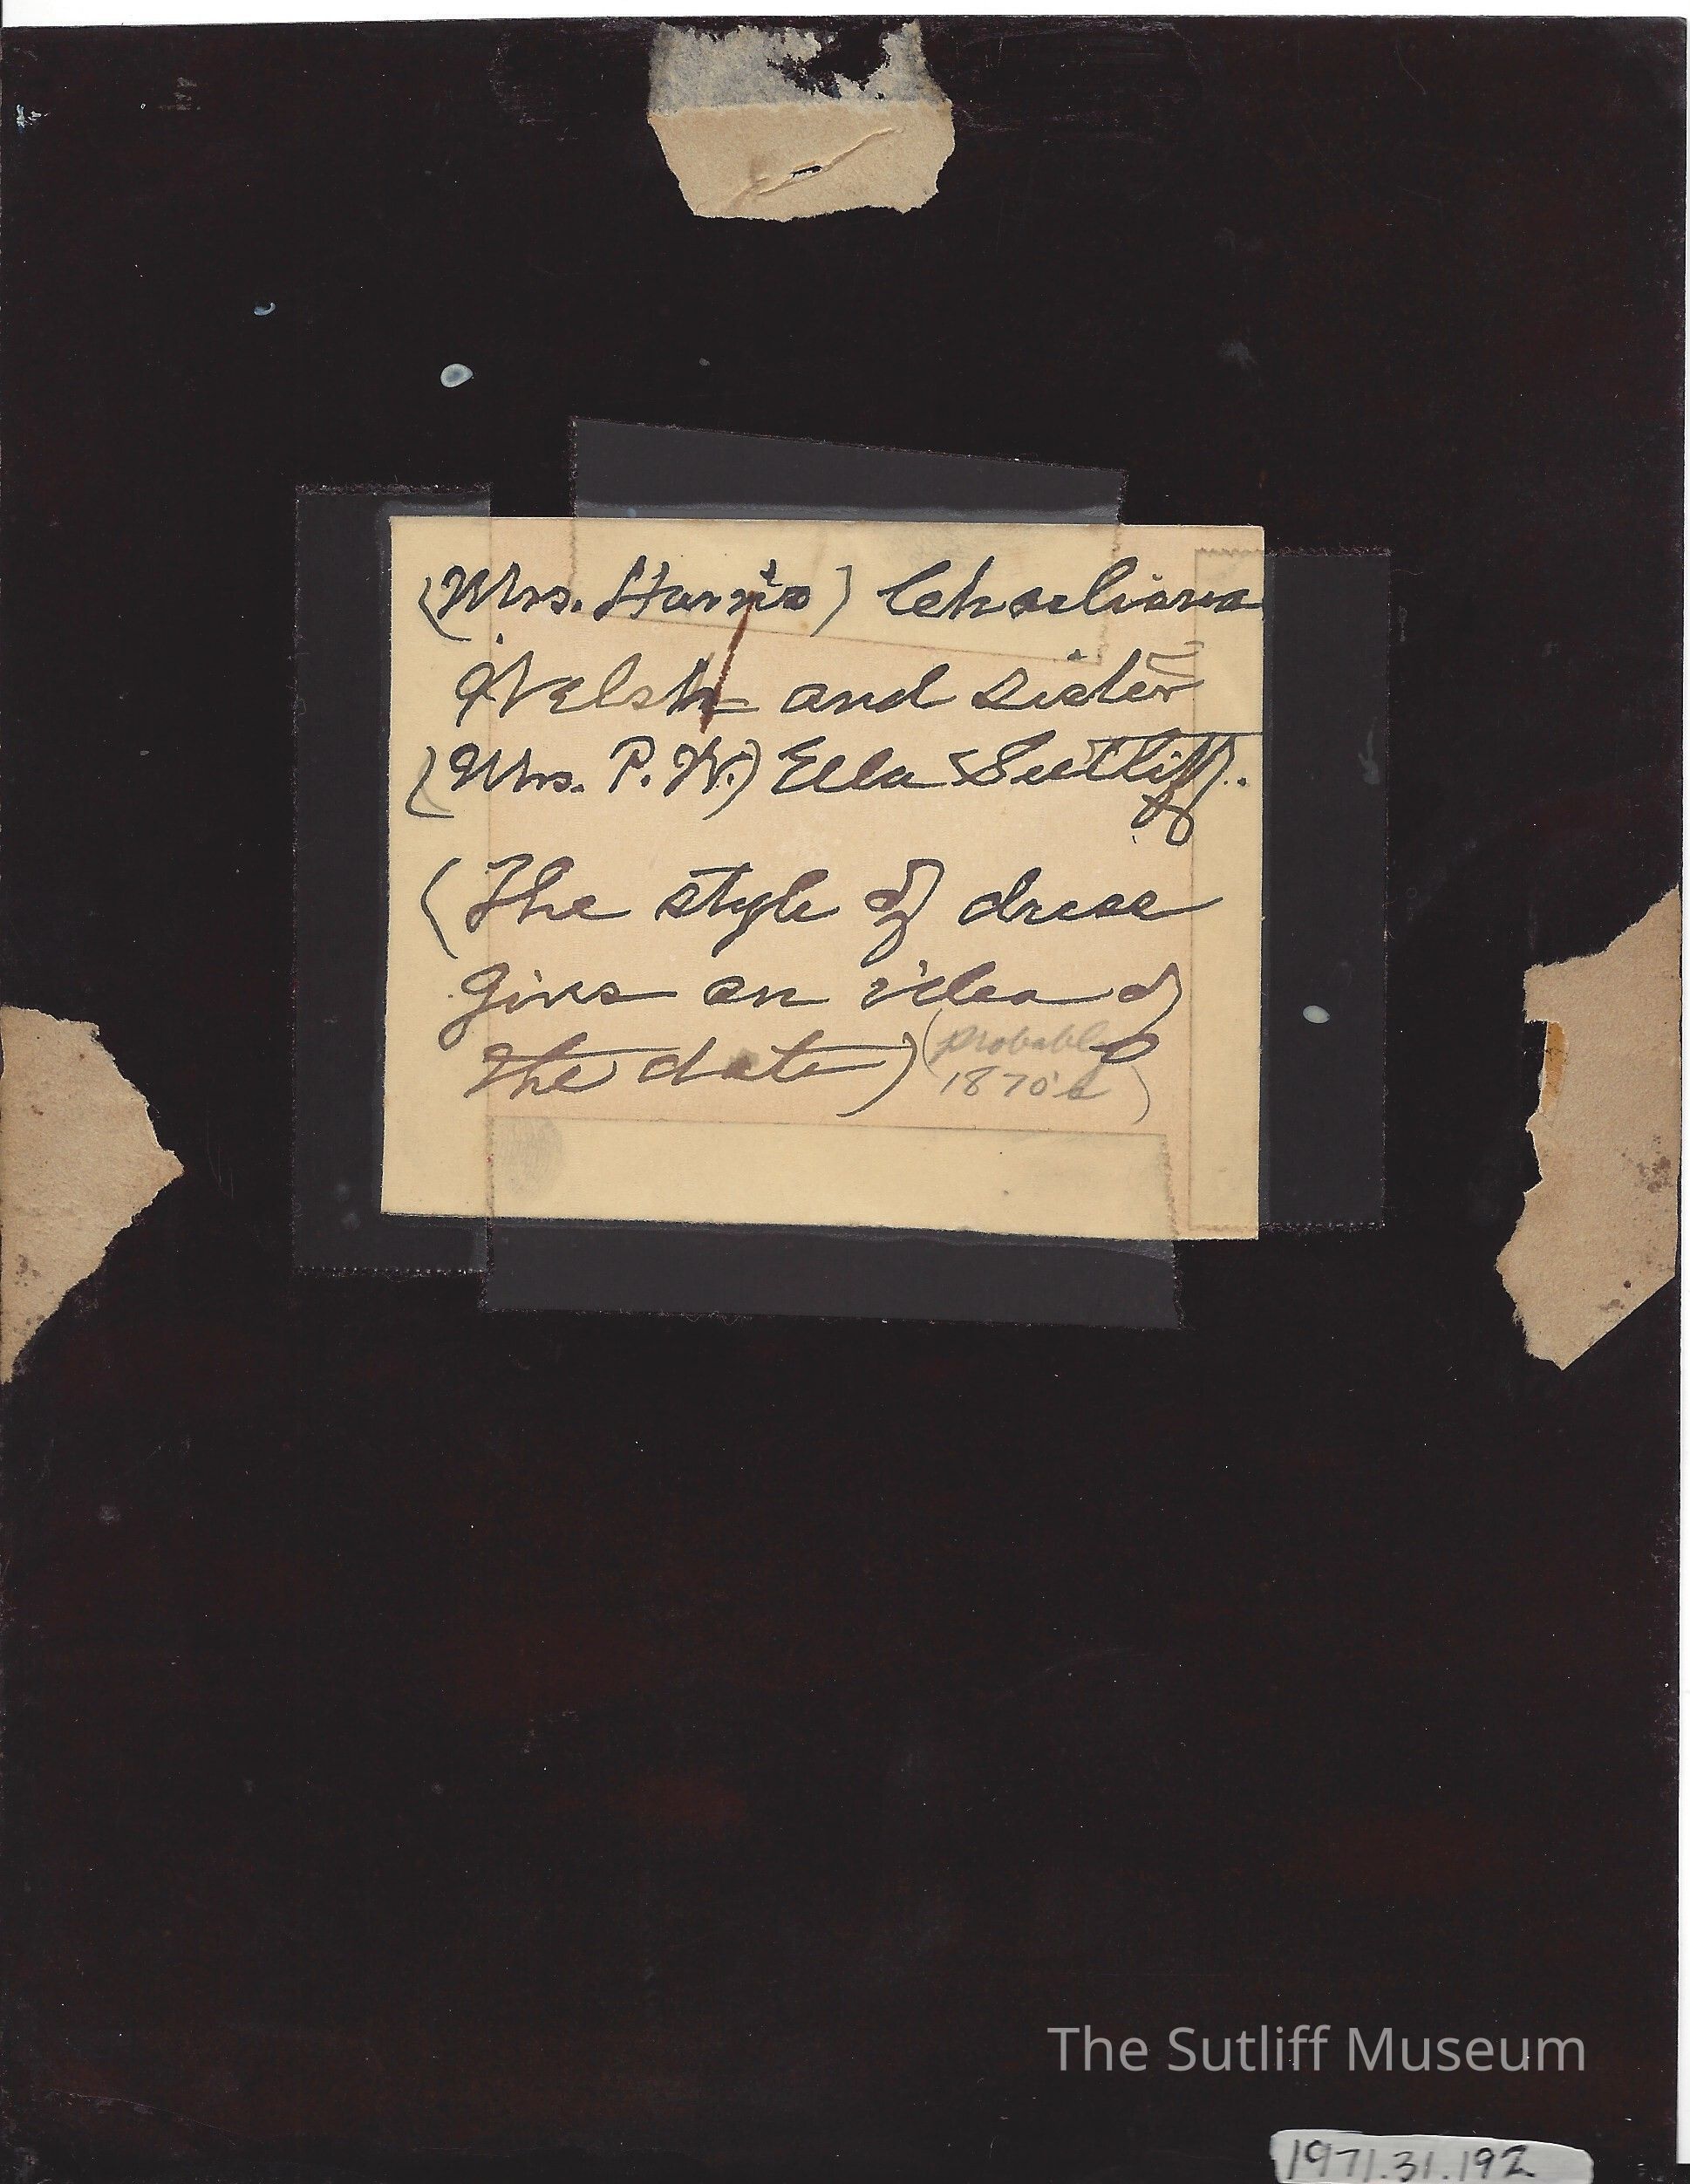 (Mrs. Harris) Charliana
Welsh and sister
(Mrs. P. W.) Ella Sutliff.
(The style of dress
gives an idea of
the date) (Probably
1870's)
The Sutliff Museum
1971.31.192